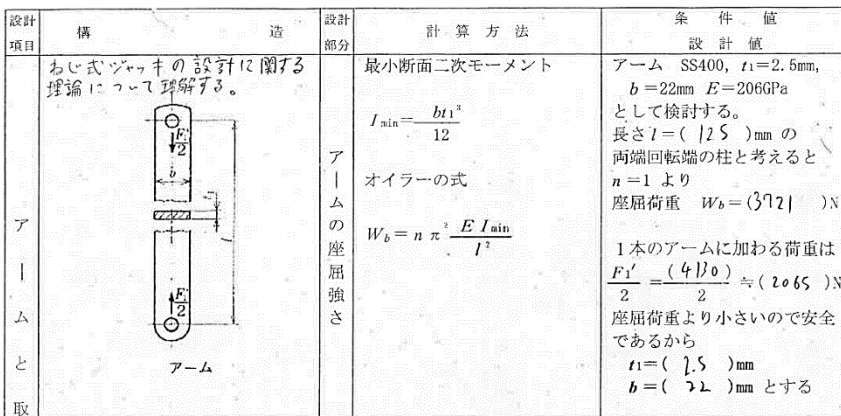 設計
項目
構 造
設計
部分
計算方法
条件値
設計値
ねじ式ジャッキの設計に関する
理論について理解する。
F1'
2
b
t1
l
F1'
2
アーム
アームと取
アームの座屈強さ
最小断面二次モーメント
I min = bt1³
12
オイラーの式
Wb = n π² E I min
l²
アーム SS400, t1=2.5mm,
b=22mm E=206GPa
として検討する。
長さ l=( 125 )mm の
両端回転端の柱と考えると
n=1 より
座屈荷重 Wb=(3721 )N
1本のアームに加わる荷重は
F1'/2 = (4130)/2 ≒( 2065 )N
座屈荷重より小さいので安全
であるから
t1=( 2.5 )mm
b=( 22 )mm とする